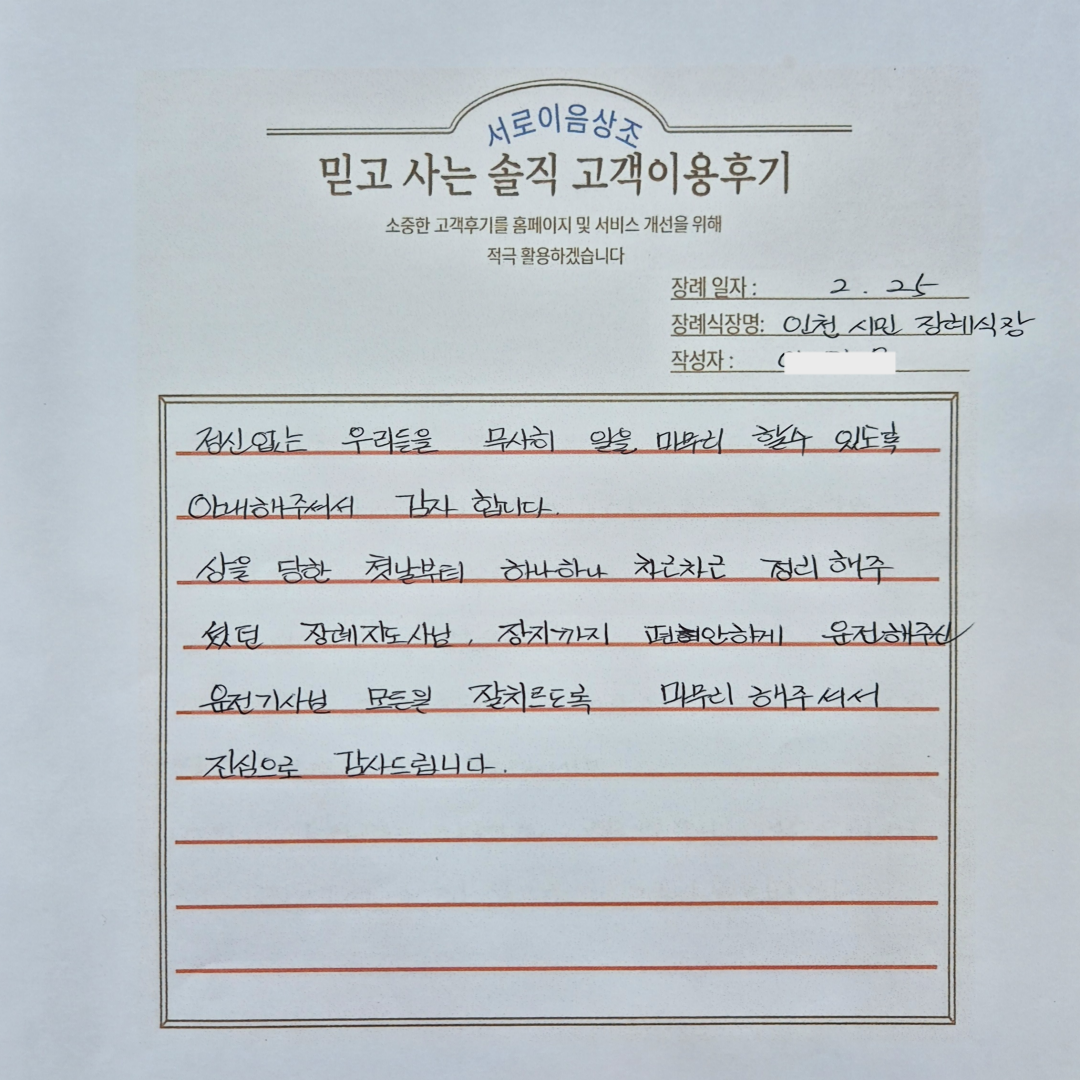 서로이음상조
믿고 사는 솔직 고객이용후기
소중한 고객후기를 홈페이지 및 서비스 개선을 위해
적극 활용하겠습니다
장례 일자 : 2 . 25
장례식장명: 인천 시민 장례식장
작성자 :
정신없는 우리들을 무사히 일을 마무리 할수 있도록
안내해주셔서 감사 합니다.
상을 당한 첫날부터 하나하나 차근차근 정리 해주
셨던 장례지도사님, 장지까지 편안하게 운전해주신
운전기사님 모든일 잘치르도록 마무리 해주셔서
진심으로 감사드립니다.